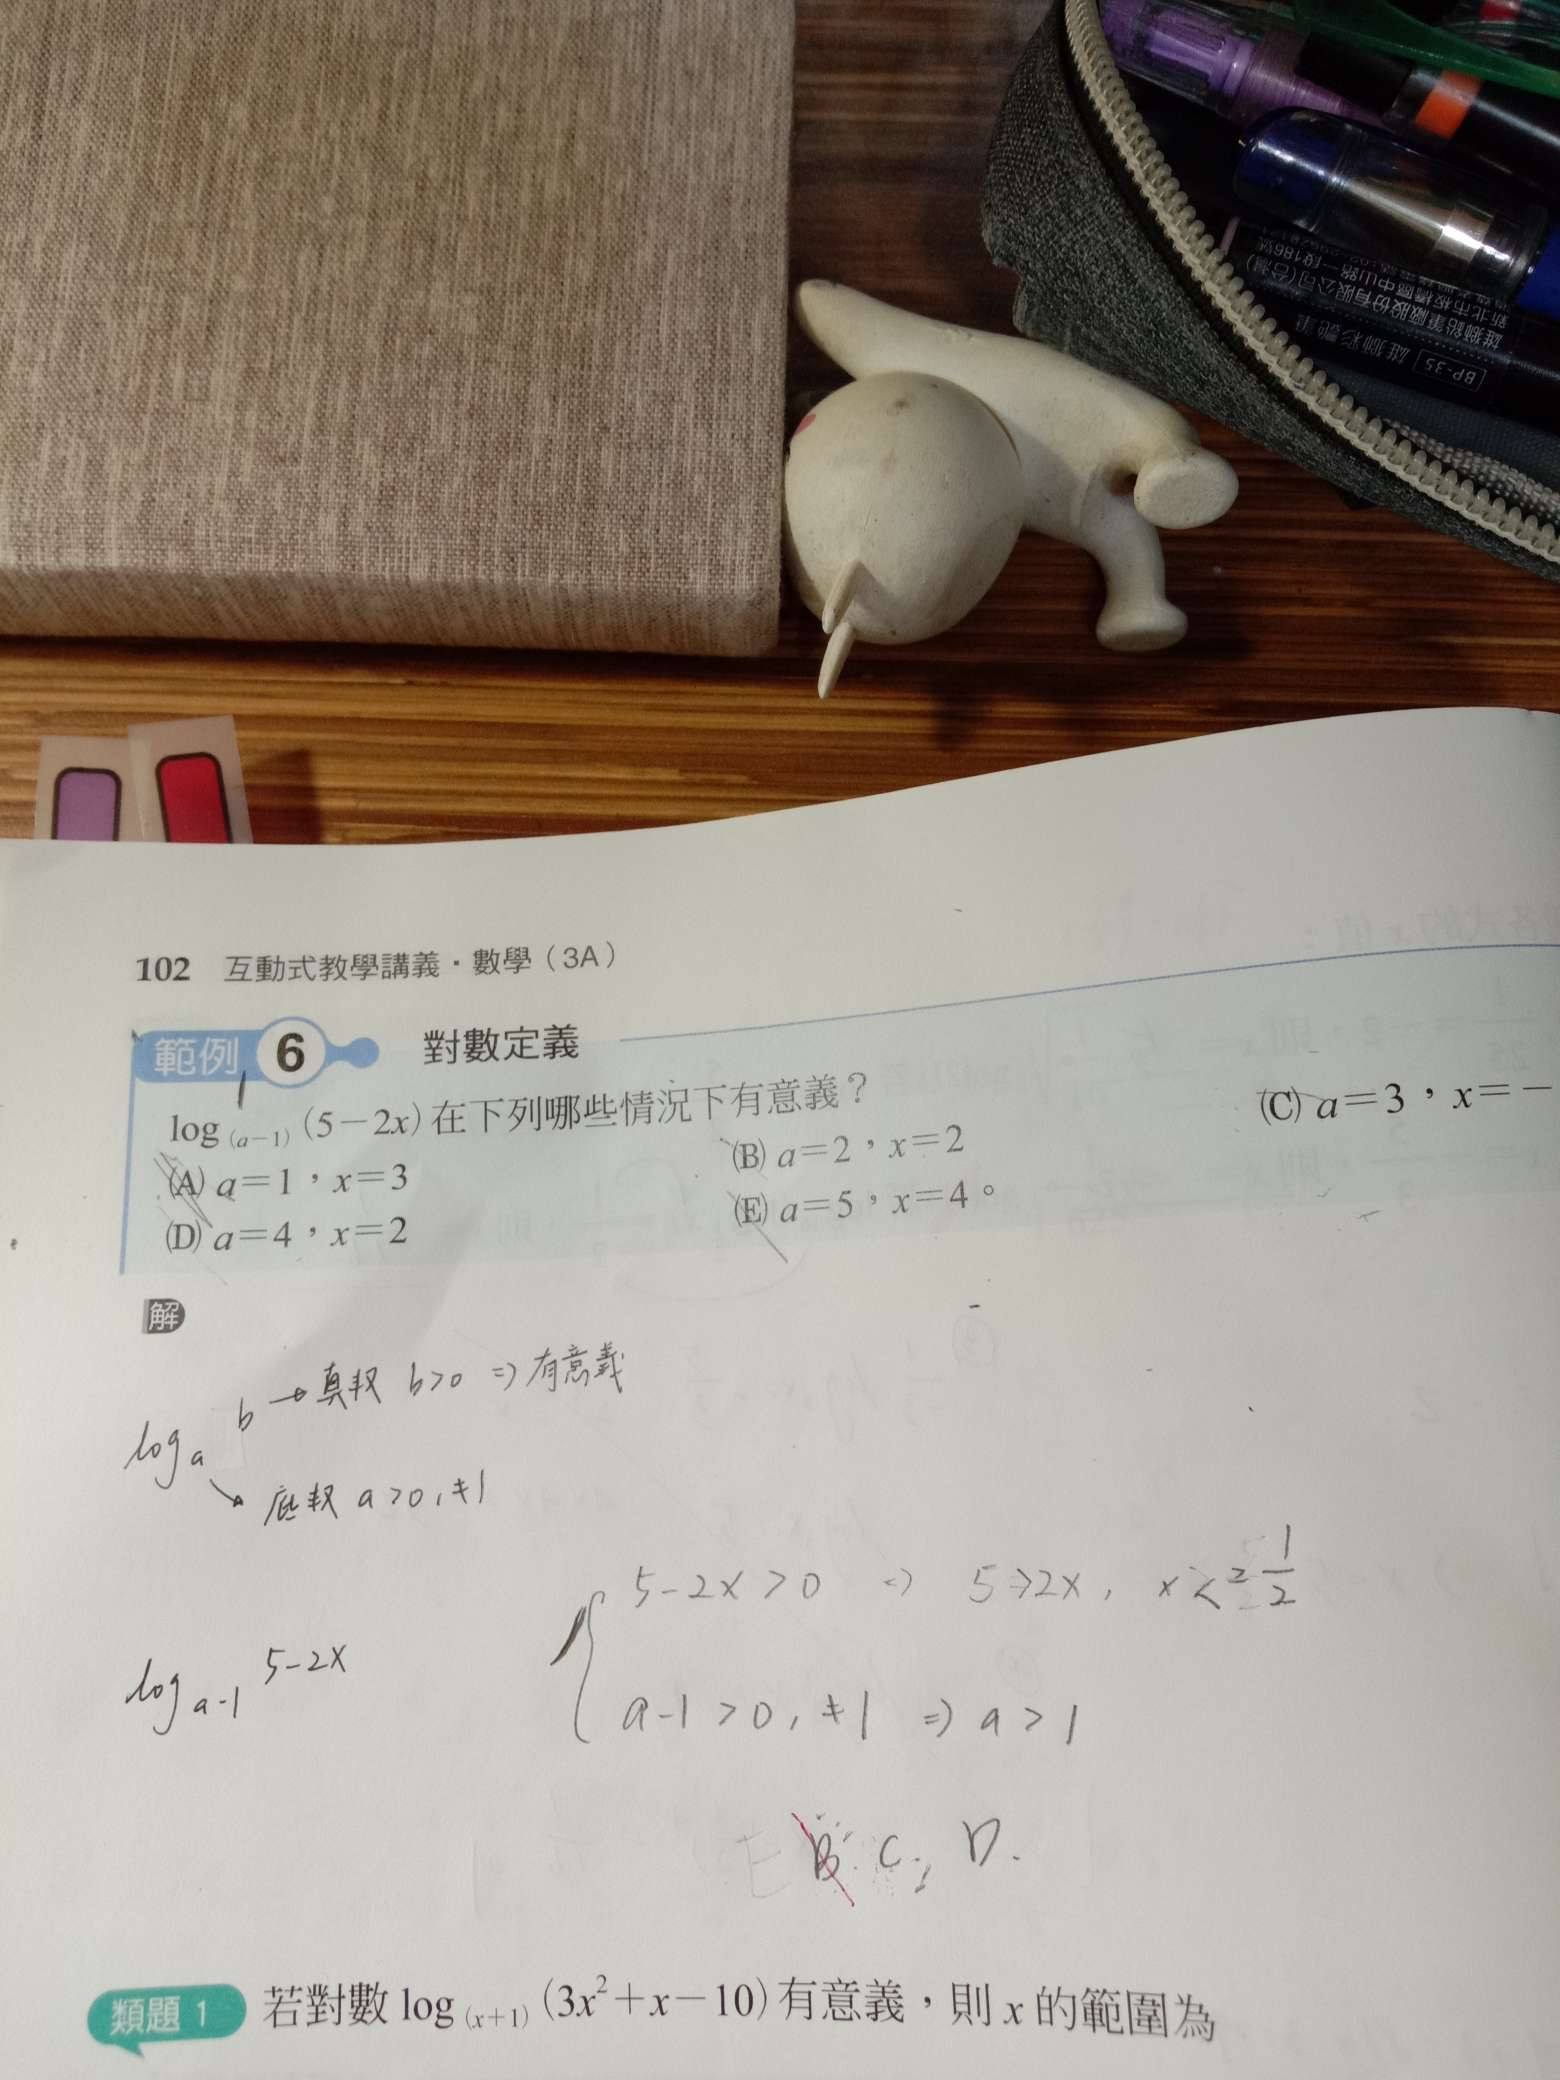 BP-35 雄獅彩艷筆
雄獅鉛筆廠股份有限公司(台灣)
新北市板橋區中山路一段186號
102 互動式教學講義・數學（3A）
範例 6 對數定義
log(a−1)(5−2x)在下列哪些情況下有意義？
(A) a=1，x=3
(B) a=2，x=2
(C) a=3，x=−
(D) a=4，x=2
(E) a=5，x=4。
解
log a b → 真数 b>0 ⇒ 有意義
底数 a>0, ≠1
log a-1 5-2x
5-2x>0 ⇒ 5>2x, x<2 1/2
a-1>0, ≠1 ⇒ a>1
B. C, D.
類題 1 若對數 log(x+1)(3x²+x−10)有意義，則 x 的範圍為